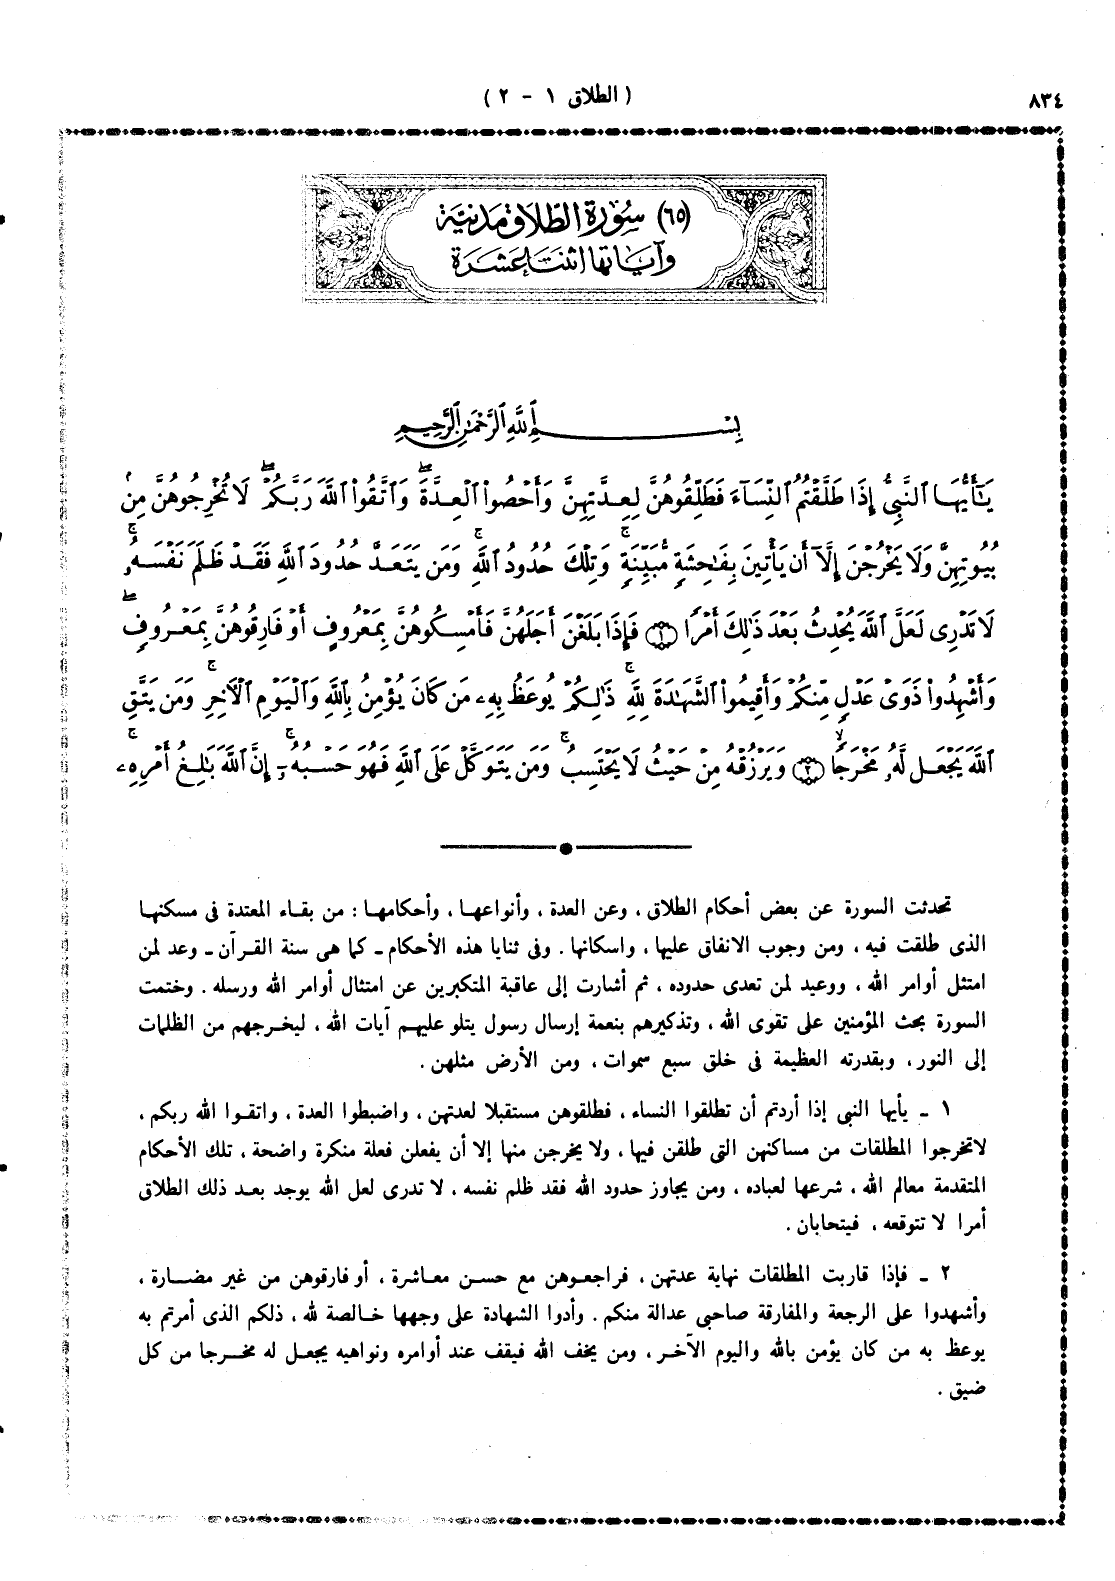 ٨٣٤
( الطلاق ١ - ٢ )
(٦٥) سُورَة الطَّلاق مَدَنيَّة
وَآيَاتهَا اثنَتَا عَشَرَة
بِسْمِ ٱللَّهِ ٱلرَّحْمَٰنِ ٱلرَّحِيمِ
يَٰٓأَيُّهَا ٱلنَّبِيُّ إِذَا طَلَّقْتُمُ ٱلنِّسَآءَ فَطَلِّقُوهُنَّ لِعِدَّتِهِنَّ وَأَحْصُوا۟ ٱلْعِدَّةَ ۖ وَٱتَّقُوا۟ ٱللَّهَ رَبَّكُمْ ۖ لَا تُخْرِجُوهُنَّ مِنۢ
بُيُوتِهِنَّ وَلَا يَخْرُجْنَ إِلَّآ أَن يَأْتِينَ بِفَٰحِشَةٍ مُّبَيِّنَةٍ ۚ وَتِلْكَ حُدُودُ ٱللَّهِ ۚ وَمَن يَتَعَدَّ حُدُودَ ٱللَّهِ فَقَدْ ظَلَمَ نَفْسَهُۥ ۚ
لَا تَدْرِى لَعَلَّ ٱللَّهَ يُحْدِثُ بَعْدَ ذَٰلِكَ أَمْرًا ﴿١﴾ فَإِذَا بَلَغْنَ أَجَلَهُنَّ فَأَمْسِكُوهُنَّ بِمَعْرُوفٍ أَوْ فَارِقُوهُنَّ بِمَعْرُوفٍ ۖ
وَأَشْهِدُوا۟ ذَوَىْ عَدْلٍ مِّنكُمْ وَأَقِيمُوا۟ ٱلشَّهَٰدَةَ لِلَّهِ ۚ ذَٰلِكُمْ يُوعَظُ بِهِۦ مَن كَانَ يُؤْمِنُ بِٱللَّهِ وَٱلْيَوْمِ ٱلْءَاخِرِ ۚ وَمَن يَتَّقِ
ٱللَّهَ يَجْعَل لَّهُۥ مَخْرَجًا ۙ ﴿٢﴾ وَيَرْزُقْهُ مِنْ حَيْثُ لَا يَحْتَسِبُ ۚ وَمَن يَتَوَكَّلْ عَلَى ٱللَّهِ فَهُوَ حَسْبُهُۥٓ ۚ إِنَّ ٱللَّهَ بَٰلِغُ أَمْرِهِۦ ۚ
تحدثت السورة عن بعض أحكام الطلاق ، وعن العدة ، وأنواعها ، وأحكامها : من بقاء المعتدة فى مسكنها
الذى طلقت فيه ، ومن وجوب الانفاق عليها ، واسكانها . وفى ثنايا هذه الأحكام ـ كما هى سنة القرآن ـ وعد لمن
امتثل أوامر الله ، ووعيد لمن تعدى حدوده ، ثم أشارت إلى عاقبة المتكبرين عن امتثال أوامر الله ورسله . وختمت
السورة بحث المؤمنين على تقوى الله ، وتذكيرهم بنعمة إرسال رسول يتلو عليهم آيات الله ، ليخرجهم من الظلمات
إلى النور ، وبقدرته العظيمة فى خلق سبع سموات ، ومن الأرض مثلهن .
١ ـ يأيها النبى إذا أردتم أن تطلقوا النساء ، فطلقوهن مستقبلا لعدتهن ، واضبطوا العدة ، واتقوا الله ربكم ،
لاتخرجوا المطلقات من مساكنهن التى طلقن فيها ، ولا يخرجن منها إلا أن يفعلن فعلة منكرة واضحة ، تلك الأحكام
المتقدمة معالم الله ، شرعها لعباده ، ومن يجاوز حدود الله فقد ظلم نفسه ، لا تدرى لعل الله يوجد بعد ذلك الطلاق
أمرا لا تتوقعه ، فيتحابان .
٢ ـ فإذا قاربت المطلقات نهاية عدتهن ، فراجعوهن مع حسن معاشرة ، أو فارقوهن من غير مضارة ،
وأشهدوا على الرجعة والمفارقة صاحبى عدالة منكم . وأدوا الشهادة على وجهها خالصة لله ، ذلكم الذى أمرتم به
يوعظ به من كان يؤمن بالله واليوم الآخر ، ومن يخف الله فيقف عند أوامره ونواهيه يجعل له مخرجا من كل
ضيق .